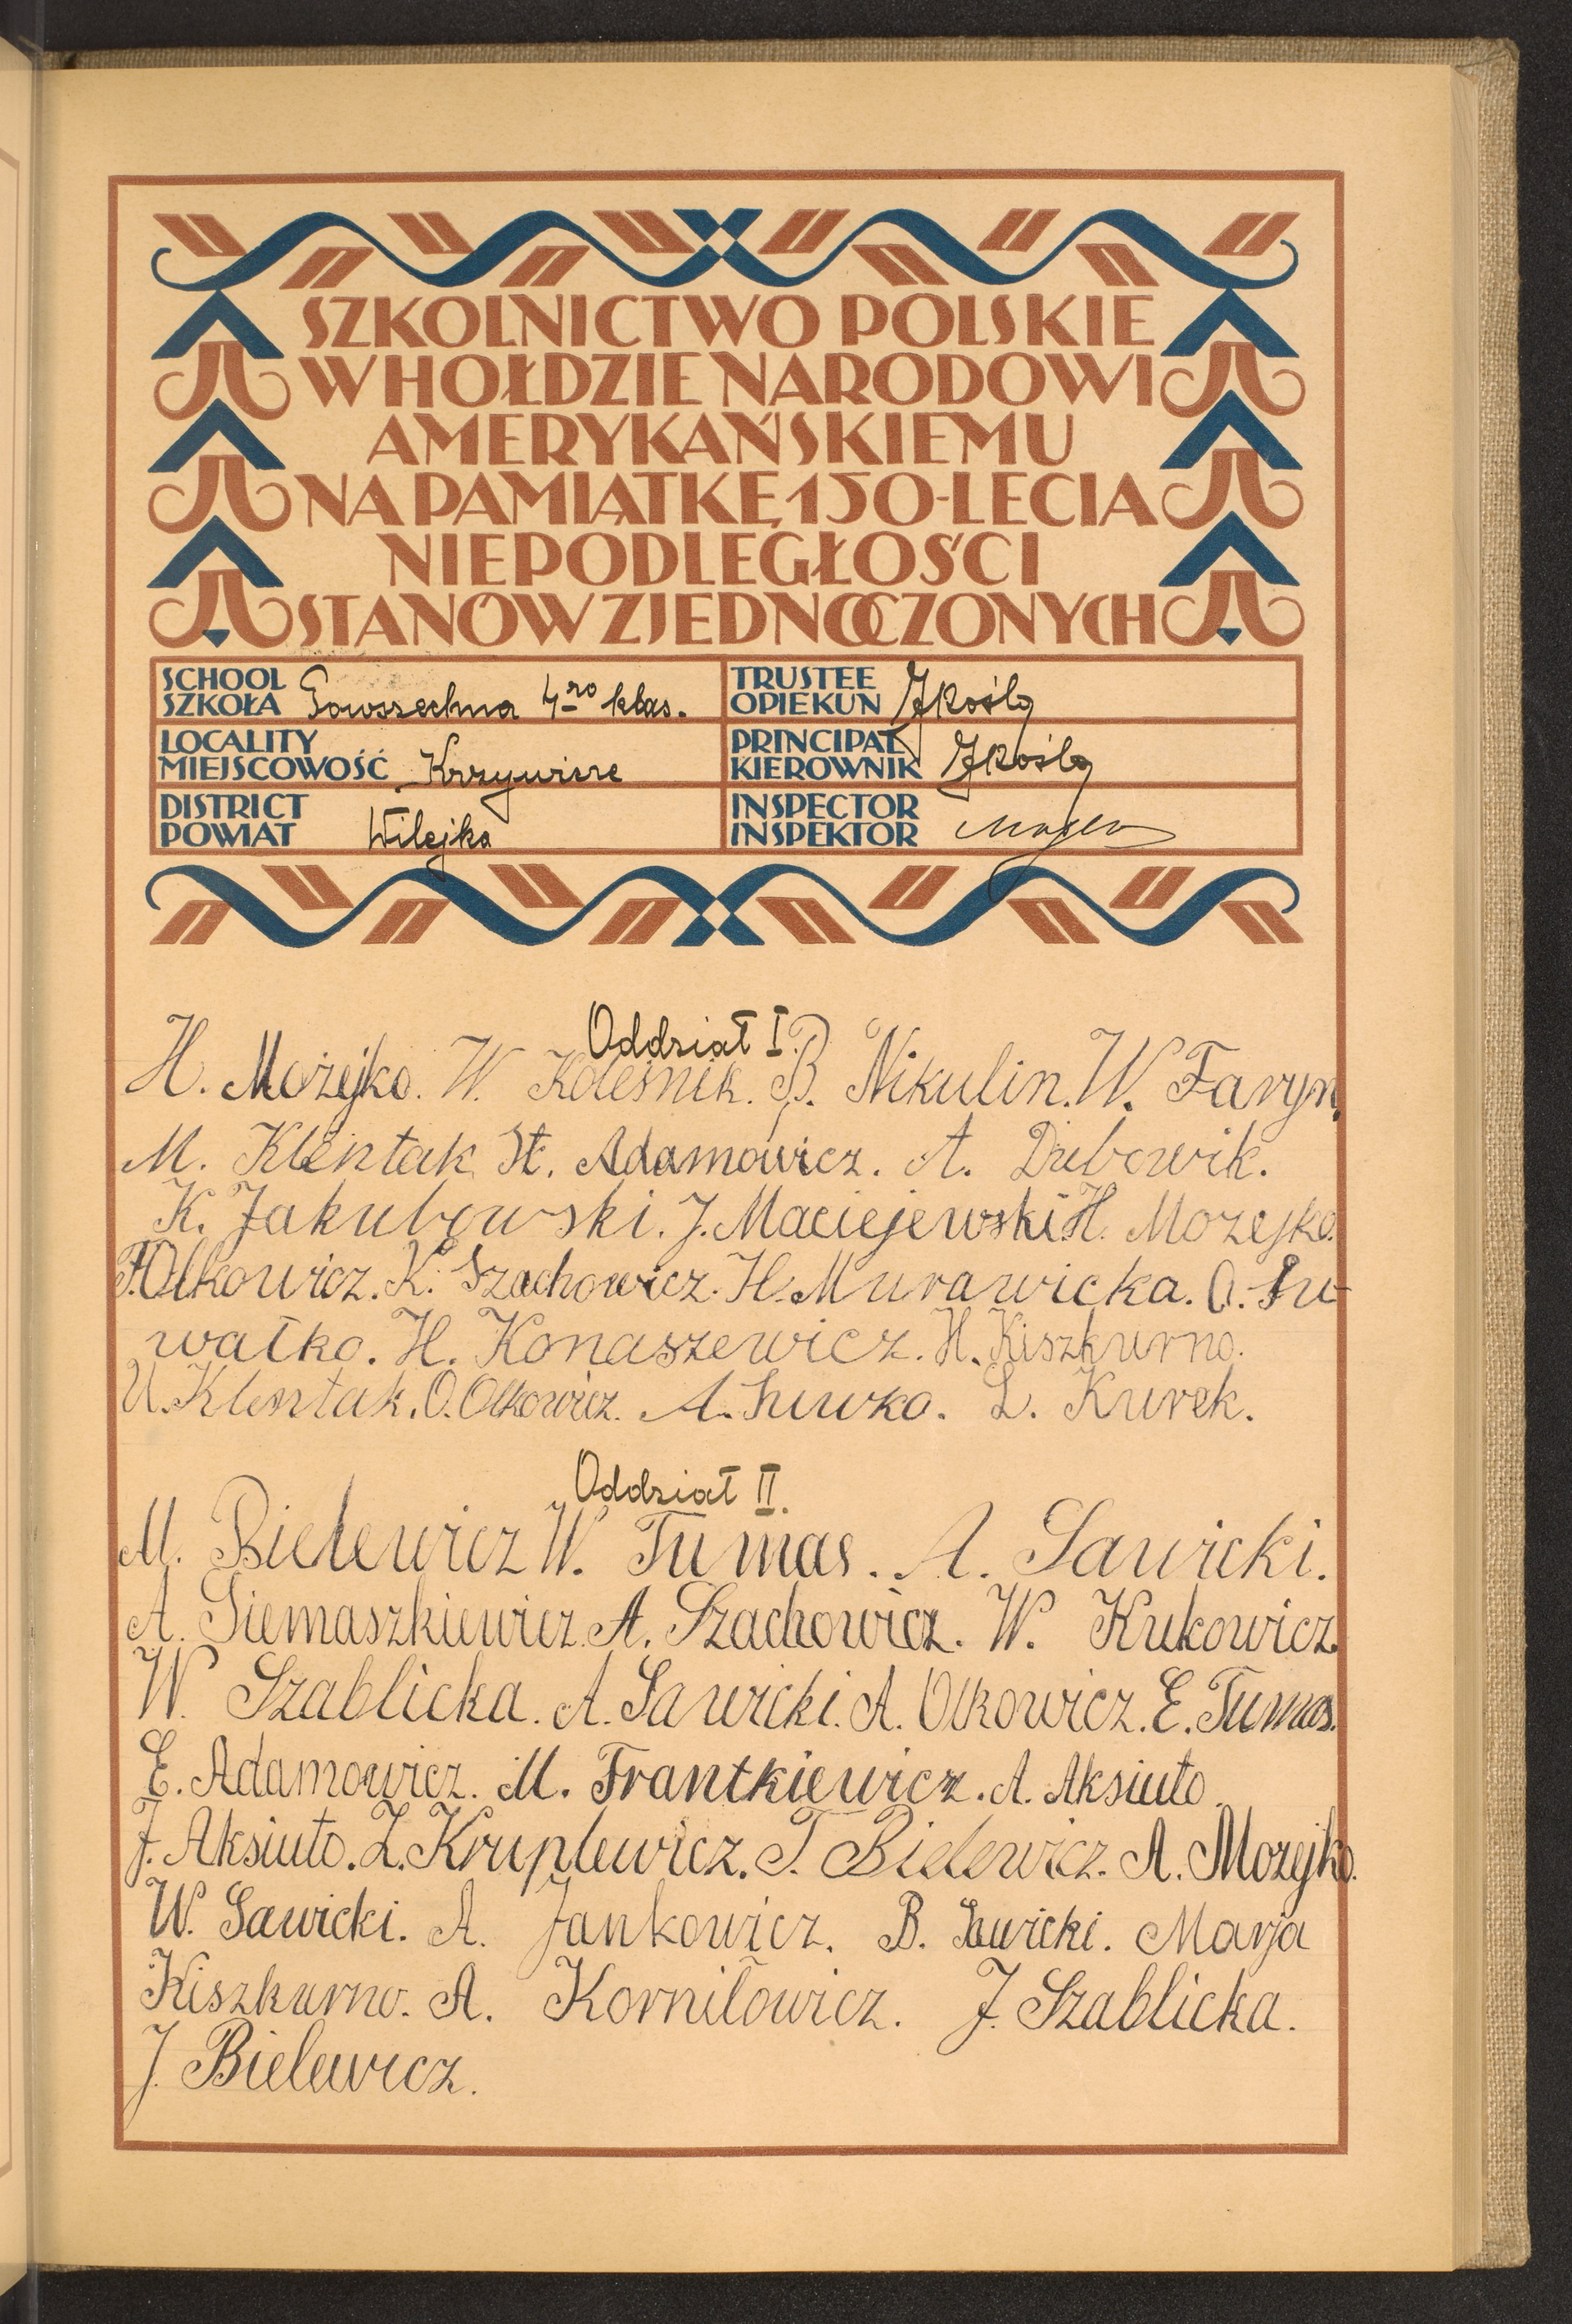 SZKOLNICTWO POLSKIE
W HOŁDZIE NARODOWI
AMERYKAŃSKIEMU
NA PAMIĄTKĘ 150-LECIA
NIEPODLEGŁOŚCI
STANÓW ZJEDNOCZONYCH
SCHOOL
SZKOŁA Powszechna 4-ro klas.
TRUSTEE
OPIEKUN
LOCALITY
MIEJSCOWOŚĆ Krzywicze
PRINCIPAL
KIEROWNIK
DISTRICT
POWIAT Wilejka
INSPECTOR
INSPEKTOR
Oddział I.
H. Możejko. W. Koleśnik. B. Nikulin. W. Faryn.
M. Klentak. St. Adamowicz. A. Dubowik.
K. Jakubowski. J. Maciejewski H. Mozejko.
F. Olkowicz. K. Szachowicz. H. Murawicka. O. Su-
wałko. H. Konaszewicz. H. Kiszkurno.
U. Klentak. O. Olkowicz. A. L. Kurek.
Oddział II.
M. Bielewicz W. Tumas. A. Sawicki.
A. Siemaszkiewicz. A. Szachowicz. W. Kukowicz.
W. Szablicka. A. Sawicki. A. Olkowicz. E. Tumas.
E. Adamowicz. M. Frantkiewicz. A. Aksiuto.
J. Aksiuto. Z. Kruplewicz. T. Bielewicz. A. Mozejko.
W. Sawicki. A. Jankowicz. B. Sawicki. Marja
Kiszkurno. A. Korniłowicz. J. Szablicka.
J. Bielewicz.